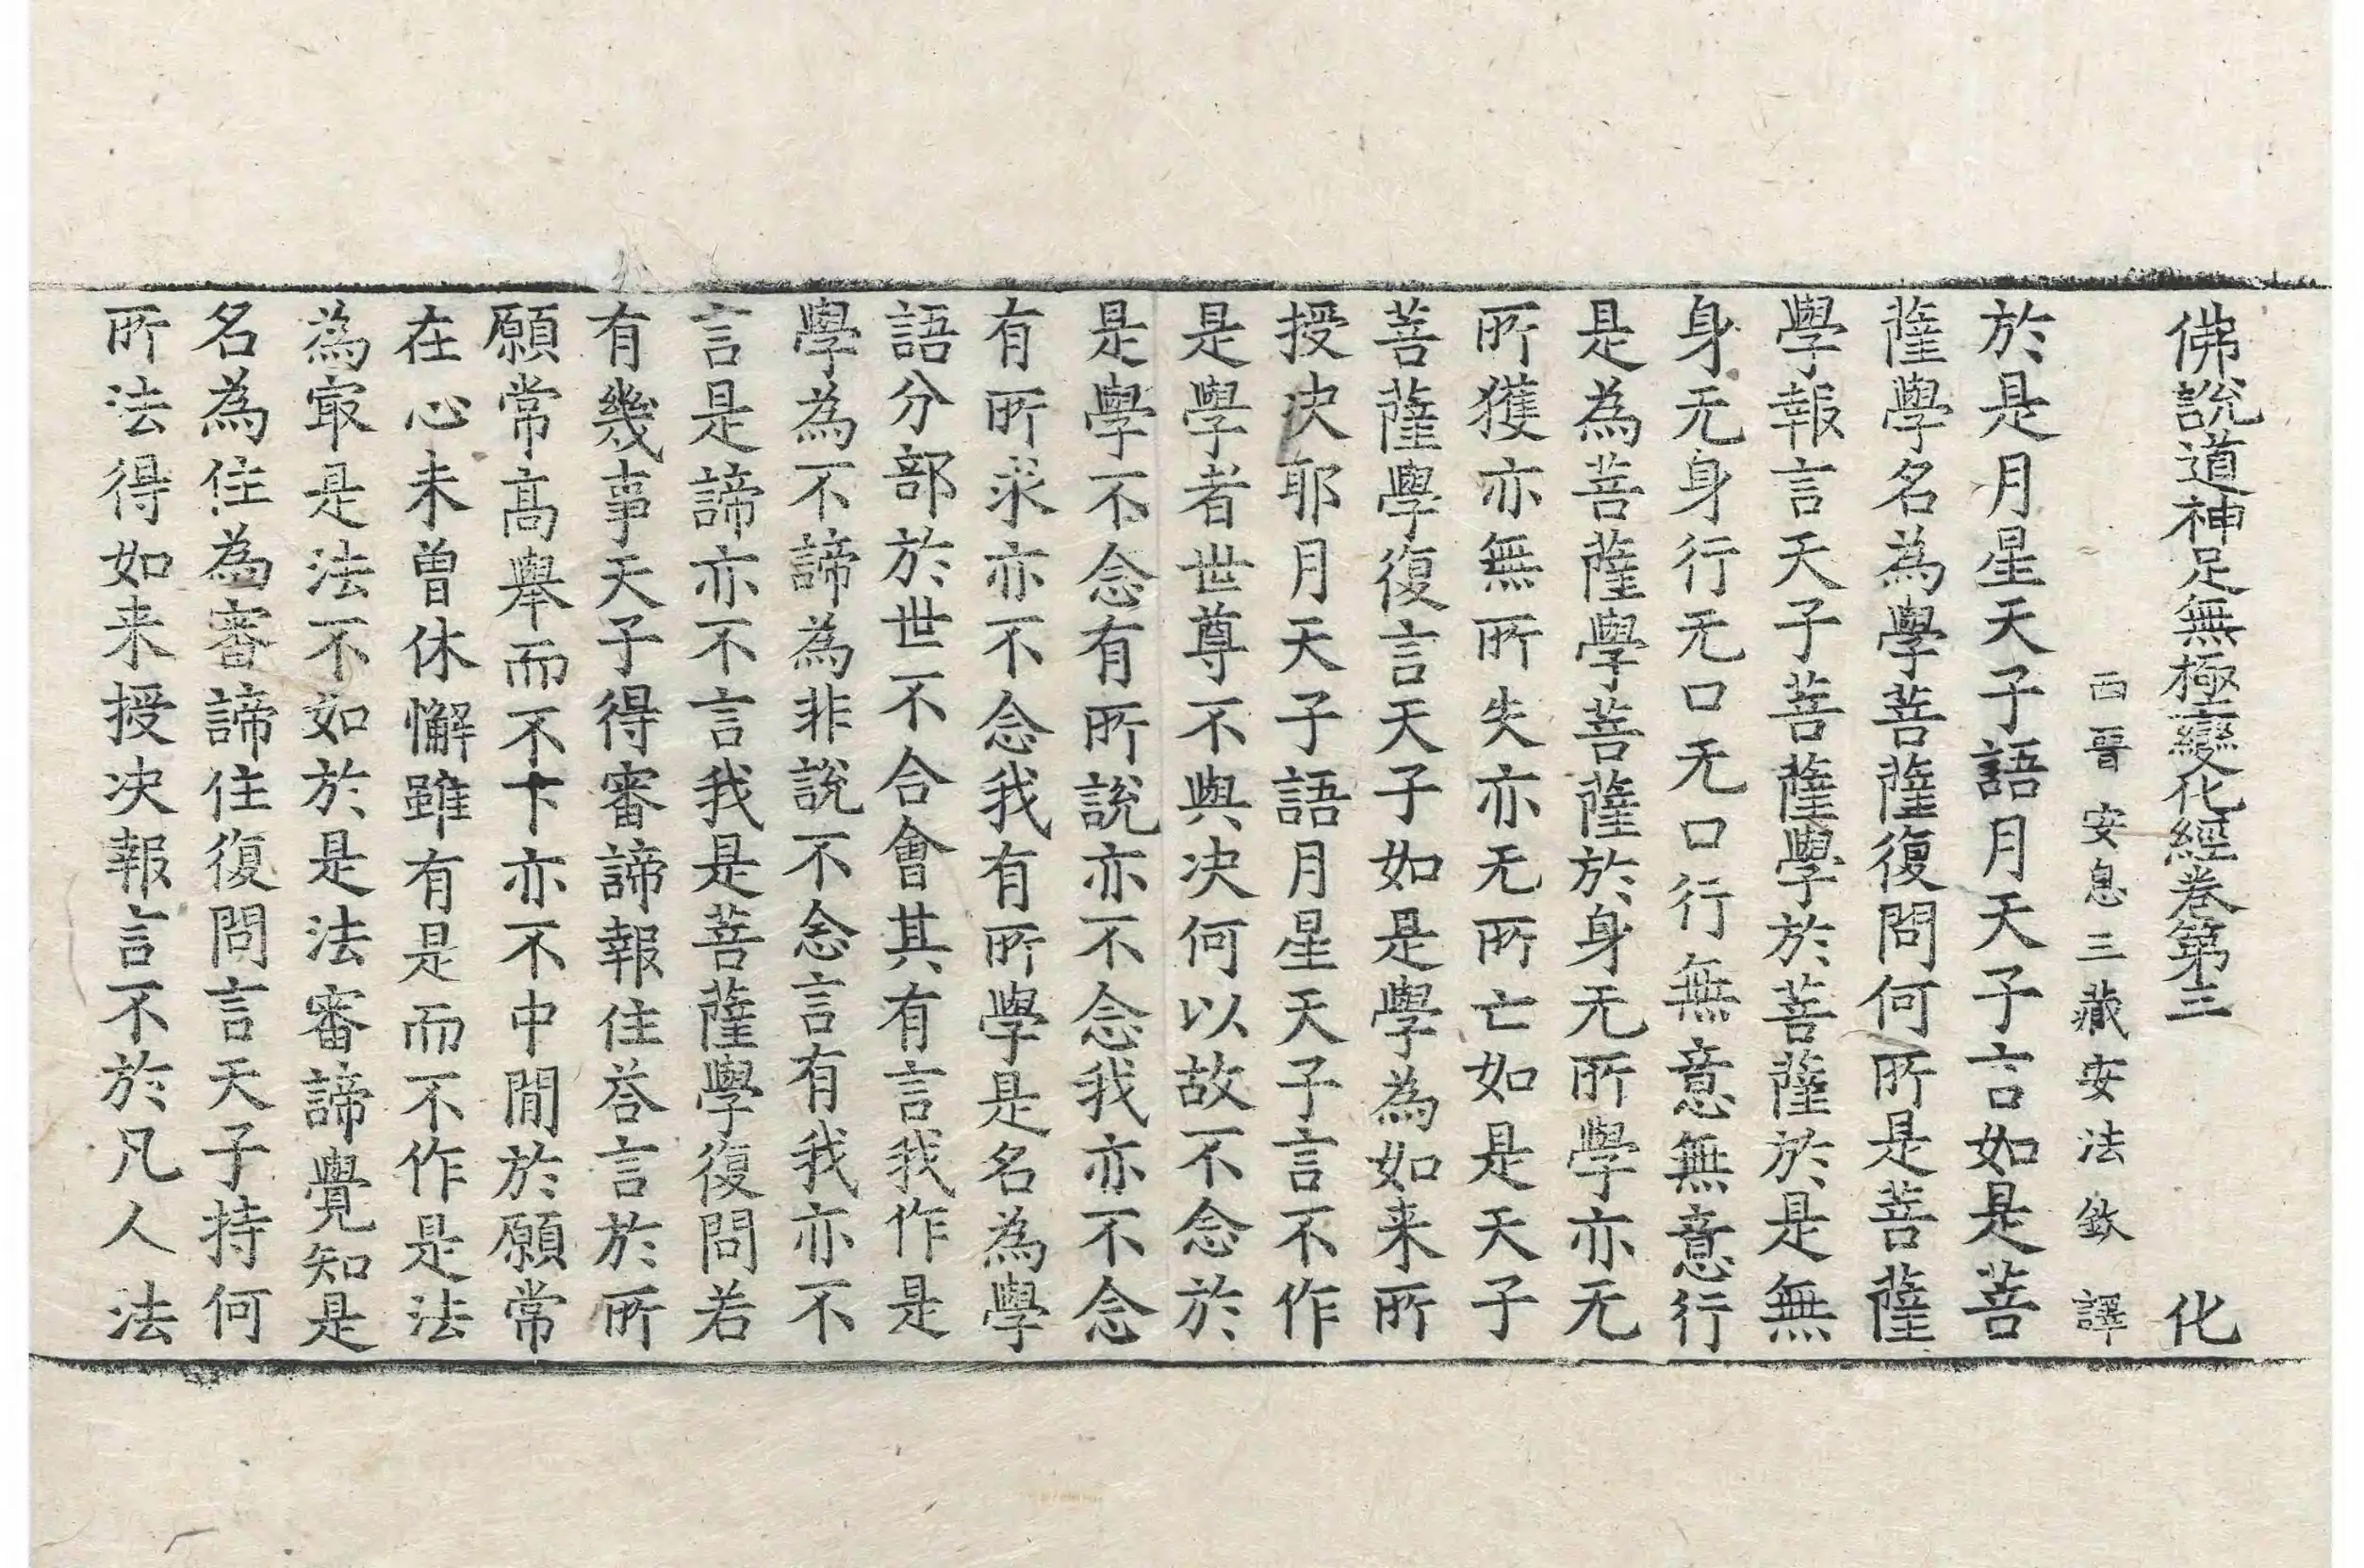 佛說道神足無極變化經卷第三 化
西晉安息三藏安法欽譯
於是月星天子語月天子言如是菩
薩學名為學菩薩復問何所是菩薩
學報言天子菩薩學於菩薩於是無
身无身行无口无口行無意無意行
是為菩薩學菩薩於身无所學亦无
所獲亦無所失亦无所亡如是天子
菩薩學復言天子如是學為如来所
授决耶月天子語月星天子言不作
是學者世尊不與决何以故不念於
是學不念有所說亦不念我亦不念
有所求亦不念我有所學是名為學
語分部於世不合會其有言我作是
學為不諦為非說不念言有我亦不
言是諦亦不言我是菩薩學復問若
有幾事天子得審諦報住荅言於所
願常高舉而不下亦不中間於願常
在心未曾休懈雖有是而不作是法
為㝡是法不如於是法審諦覺知是
名為住為審諦住復問言天子持何
所法得如来授决報言不於凡人法